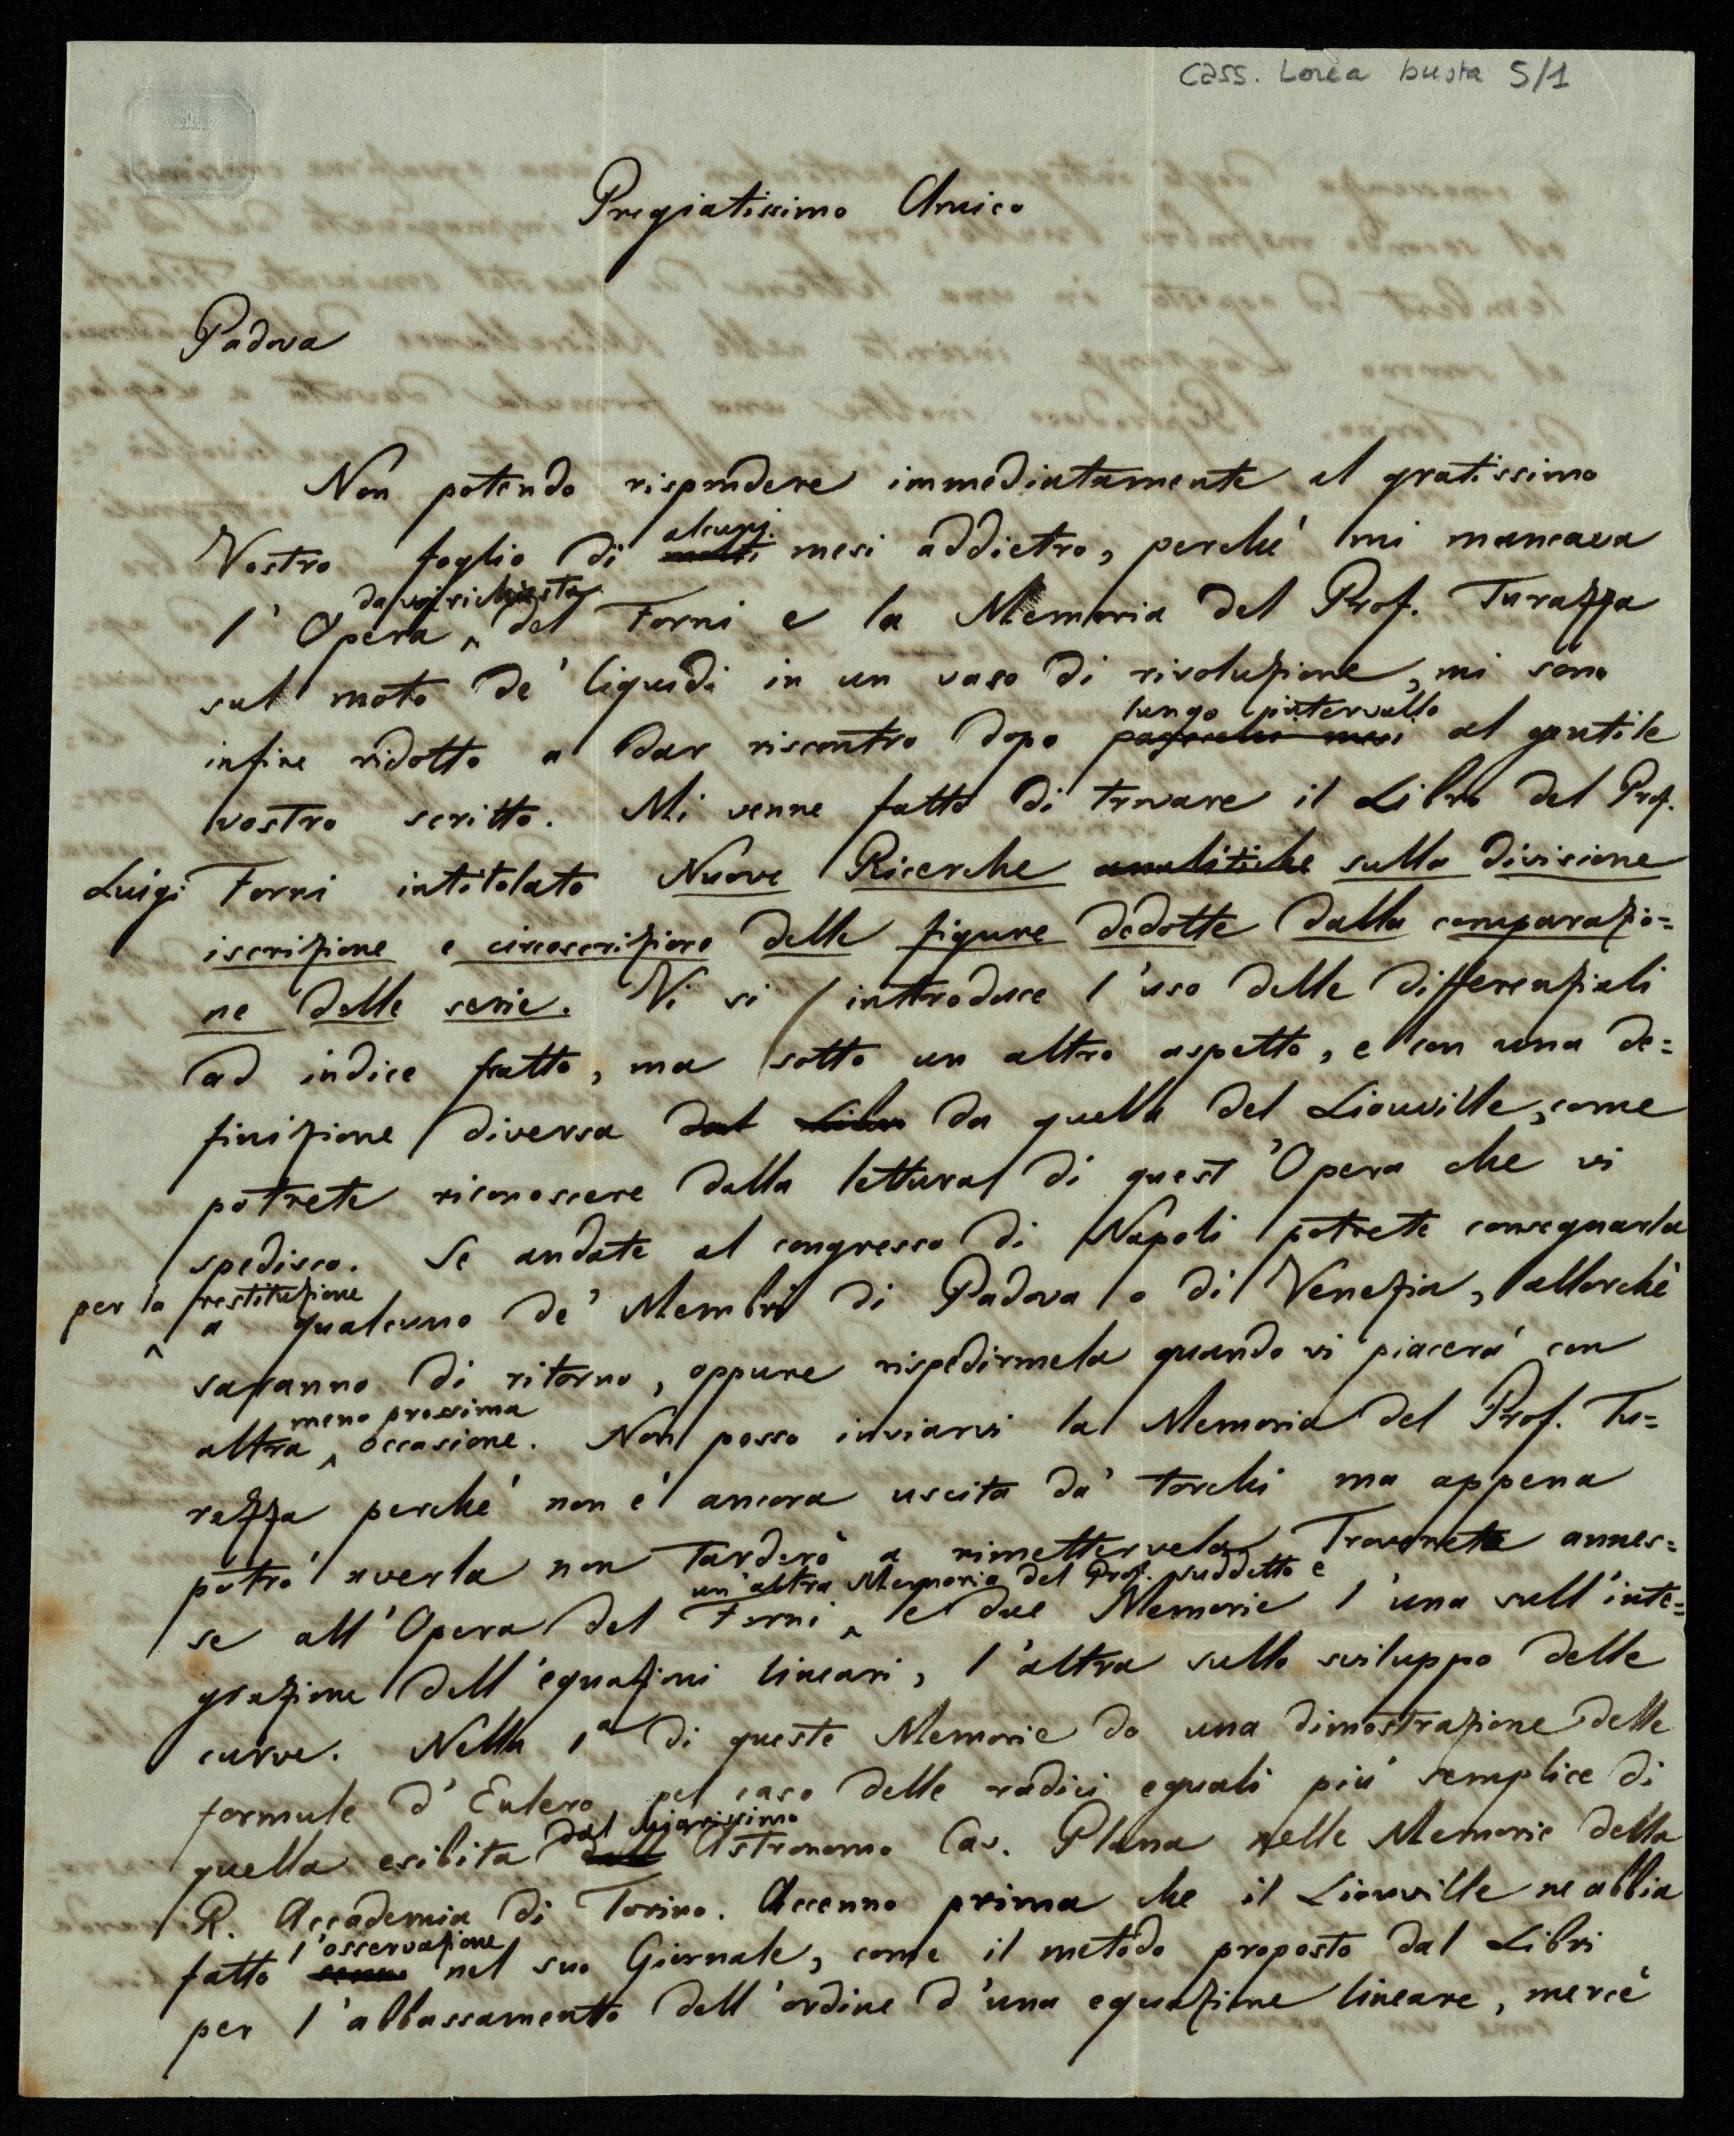 Cass. Loria busta S/1
Pregiatissimo Amico
Padova
Non potendo rispondere immediatamente al gratissimo
Vostro foglio di molti alcuni mesi addietro, perchè mi mancava
l'Opera da voi richiesta del Forni e la Memoria del Prof. Turazza
sul moto de' liquidi in un vaso di rivoluzione, mi sono
infine ridotto a dar riscontro dopo parecchi mesi lungo intervallo al gentile
vostro scritto. Mi venne fatto di trovare il Libro del Prof.
Luigi Forni intitolato Nuove Ricerche analitiche sulla divisione
iscrizione e circoscrizione delle figure dedotte dalla comparazio=
ne delle serie. Vi si introduce l'uso delle differenziali
ad indice fratto, ma sotto un altro aspetto, e con una de=
finizione diversa dal Libri da quella del Liouville, come
potrete riconoscere dalla lettura di quest'Opera che vi
spedisco. Se andate al congresso di Napoli potrete consegnarla
per la restituzione a qualcuno de' Membri di Padova o di Venezia, allorchè
saranno di ritorno, oppure rispedirmela quando vi piacerà con
altra meno prossima occasione. Non posso inviarvi la Memoria del Prof. Tu=
razza perchè non è ancora uscita da' torchi ma appena
potrò averla non tarderò a rimettervela. Troverete annes=
se all'Opera del Forni un'altra Memoria del Prof. suddetto e e due Memorie l'una sull'inte=
grazione dell'equazioni lineari, l'altra sullo sviluppo delle
curve. Nella 1a di queste Memorie do una dimostrazione delle
formule d'Eulero pel caso delle radici eguali più semplice di
quella esibita dal chiarissimo Astronomo Cav. Plana nelle Memorie della
R. Accademia di Torino. Accenno prima che il Liouville ne abbia
fatto l'osservazione nel suo Giornale, come il metodo proposto dal Libri
per l'abbassamento dell'ordine d'una equazione lineare, mercè